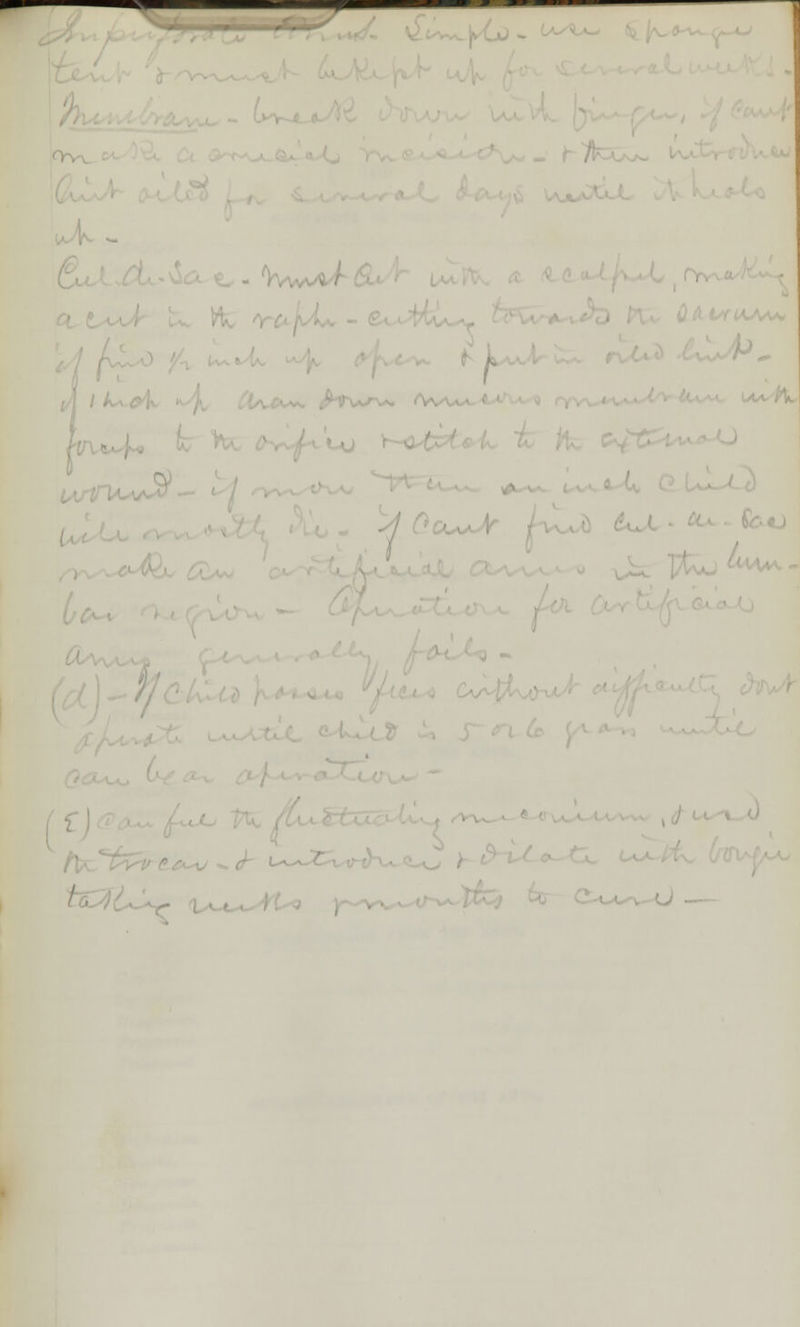 Imperforate Anus. Simple - use sponge
tent & must be kept up for several weeks.
Membrane - break down with finger, if cant
make a crucial incision - & then introduce
lint oiled for several days until it heals
up -
Cul-de-Sac - must cut with a scalpel, making
a cut in the raphe - cutting towards the sacrum
if find ½ inch up open & put in oiled lint -
if 1 inch up draw down mucous membrane with
forceps to the orifice & stitch to the external
wound - if more than an inch child
will mostly die - if cant find cul-de-sac
make an artificial anus in the lum-
bar region - Operation for artificial
anus generally fails -
(d) - If child passes feces without difficulty dont
operate until child is 5 or 6 years until
can bear operation -
(E) can feel the fluctuating meconium, & used
the trocar - & introduce & dilate with bougie
taking weeks & months to cure -